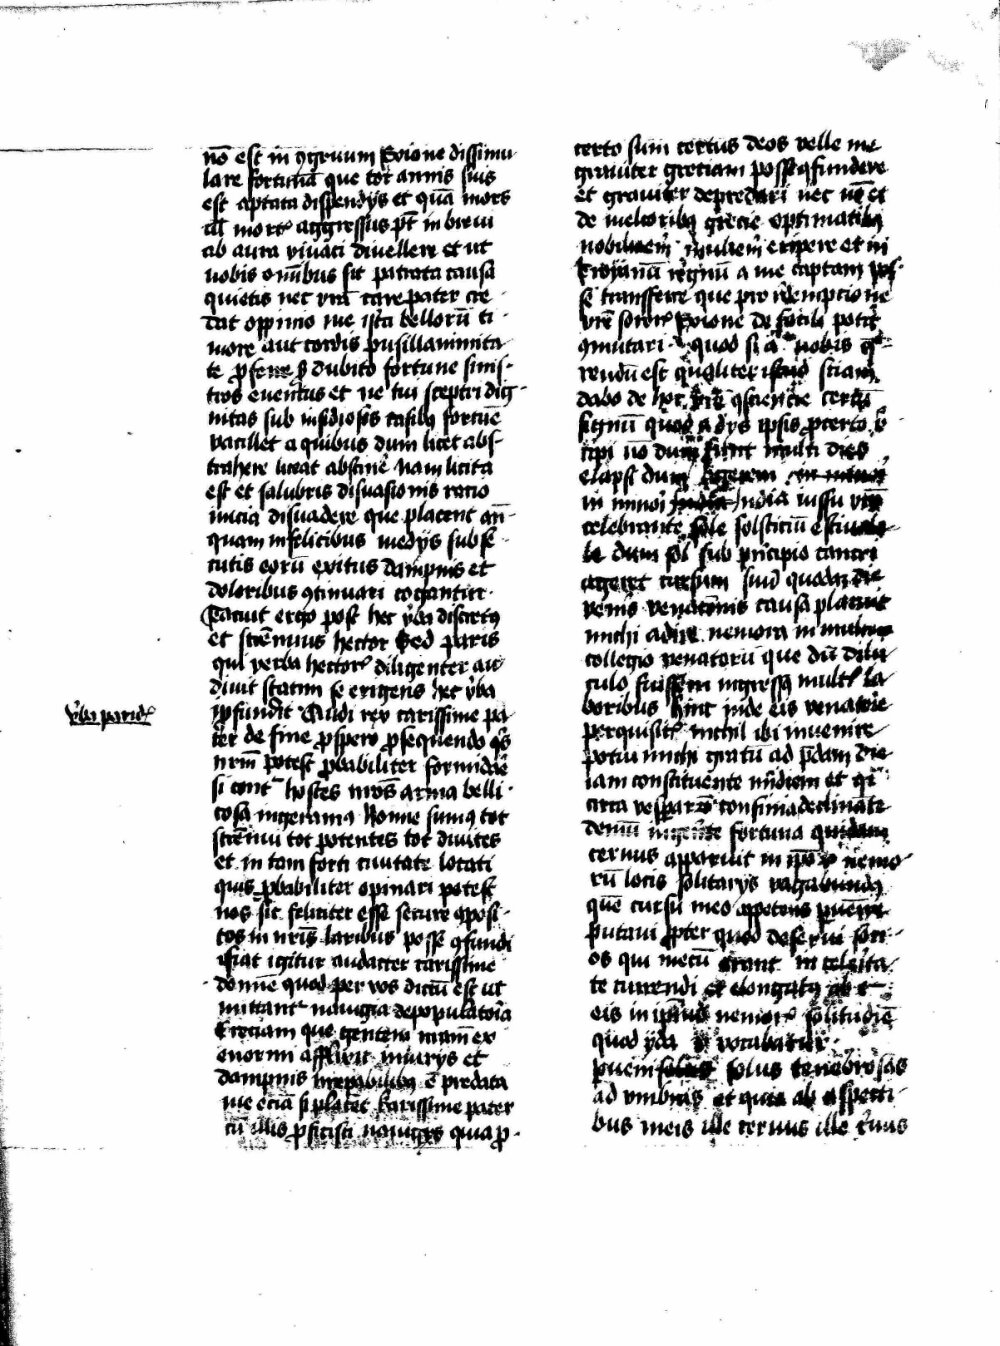 nō est in ꝯgruum Exione dissimu
lare fortunā que tot annis suis
est aptata dispendijs et quā mors
aggressus pt̄ in breui
ab aura viuaci diuellere et ut
uobis om̄ibus sit patrata causa
quietis nec vr̄a care pater cre
dat oppinio me ista bellorū ti
more aut cordis pusillanimita
te ꝓferre s̄ dubito fortune sinis
tros euentus et ne tui sceptri dig
nitas sub insidiosis casibꝫ fortune
vacillet a quibus dum licet abs
trahere liceat abstine Nam licita
est et salubris disuasionis racio
inicia disuadere que placent an
quam infelicibus medijs subse
cutis eorū exitus dampnis et
doloribus ꝯtinuari cogantur
Tacuit ergo post hec v̄ba discretus
et strēnuus hector Sed paris
qui verba hectoris diligenter au
diuit statim se erigens hec v̄ba
ꝓfundit Audi rex carissime pa
v̄ba paridis
ter de fine ꝓspero ꝓsequendo qͥs
nr̄m potest ꝓbabiliter formidare
si contra hostes nr̄os arma belli
cosa ingeramꝰ Nonne sumꝰ tot
strēnui tot potentes tot diuites
et in tam forti ciuitate locati
quis ꝓbabiliter opinari potest
nos sic feliciter esse secure ꝯposi
tos in nr̄is laribus posse ꝯfundi
fiat igitur audacter carissime
domine quod per vos dictū est ut
mittantur nauigia depopulatoria
Greciam que gentem nr̄am ex
enormi affluit iniurijs et
dampnis irreꝑabilibꝫ ē predata
me eciā si placet karissime pater
cū illis ꝓficisci nauigijs quia ꝓ
certo sum certus deos velle me
grauiter greciam posse ꝯfundere
et grauiter depredari nec nō et
de melioribꝫ grecie optimatibꝫ
nobilem mulierem eripere et in
Troianū regnū a me captam pos
se transferre que pro redemptione
vr̄e sororis Exione de facili poterit
ꝯmutari quod si a uobis que
rendū est qualiter istud sciam
dabo de hoc vr̄e ꝯsciencie certū
signū quod a dijs ipsis ꝓcerto re
cepi nō dum sunt multi dies
elapsi dum agerem
in minori India iussu vr̄o
celebrante sole solsticiū estiuale
le dum sol sub principio cancri
ageret cursum suū quodam die
veneris venacōnis causa placuit
michi adire nemora in multo
collegio venatorū que dū dilu
culo fuissem ingressꝰ multis la
boribus hinc inde eis venatorie
perquisitis nichil ibi inuenire
potui michi gratū ad p̄dam die
iam constituente meridiem et qͥ
circa vesparū confinia declinante
demū ingerente fortuna quidam
ceruus apparuit in ip̄orum nemo
rū locis solitarijs vagabundꝰ
quē cursū meo appetens ꝑuenire
putaui ꝓpter quod deserui soci
os qui mecū erant in celerita
te currendi et elongatꝰ ab
eis in ip̄ius nemoris solitudine
quod yda vocabatur
ꝑueni solus tenebrosas
ad vmbras et quia ab aspecti
bus meis ille ceruus ille